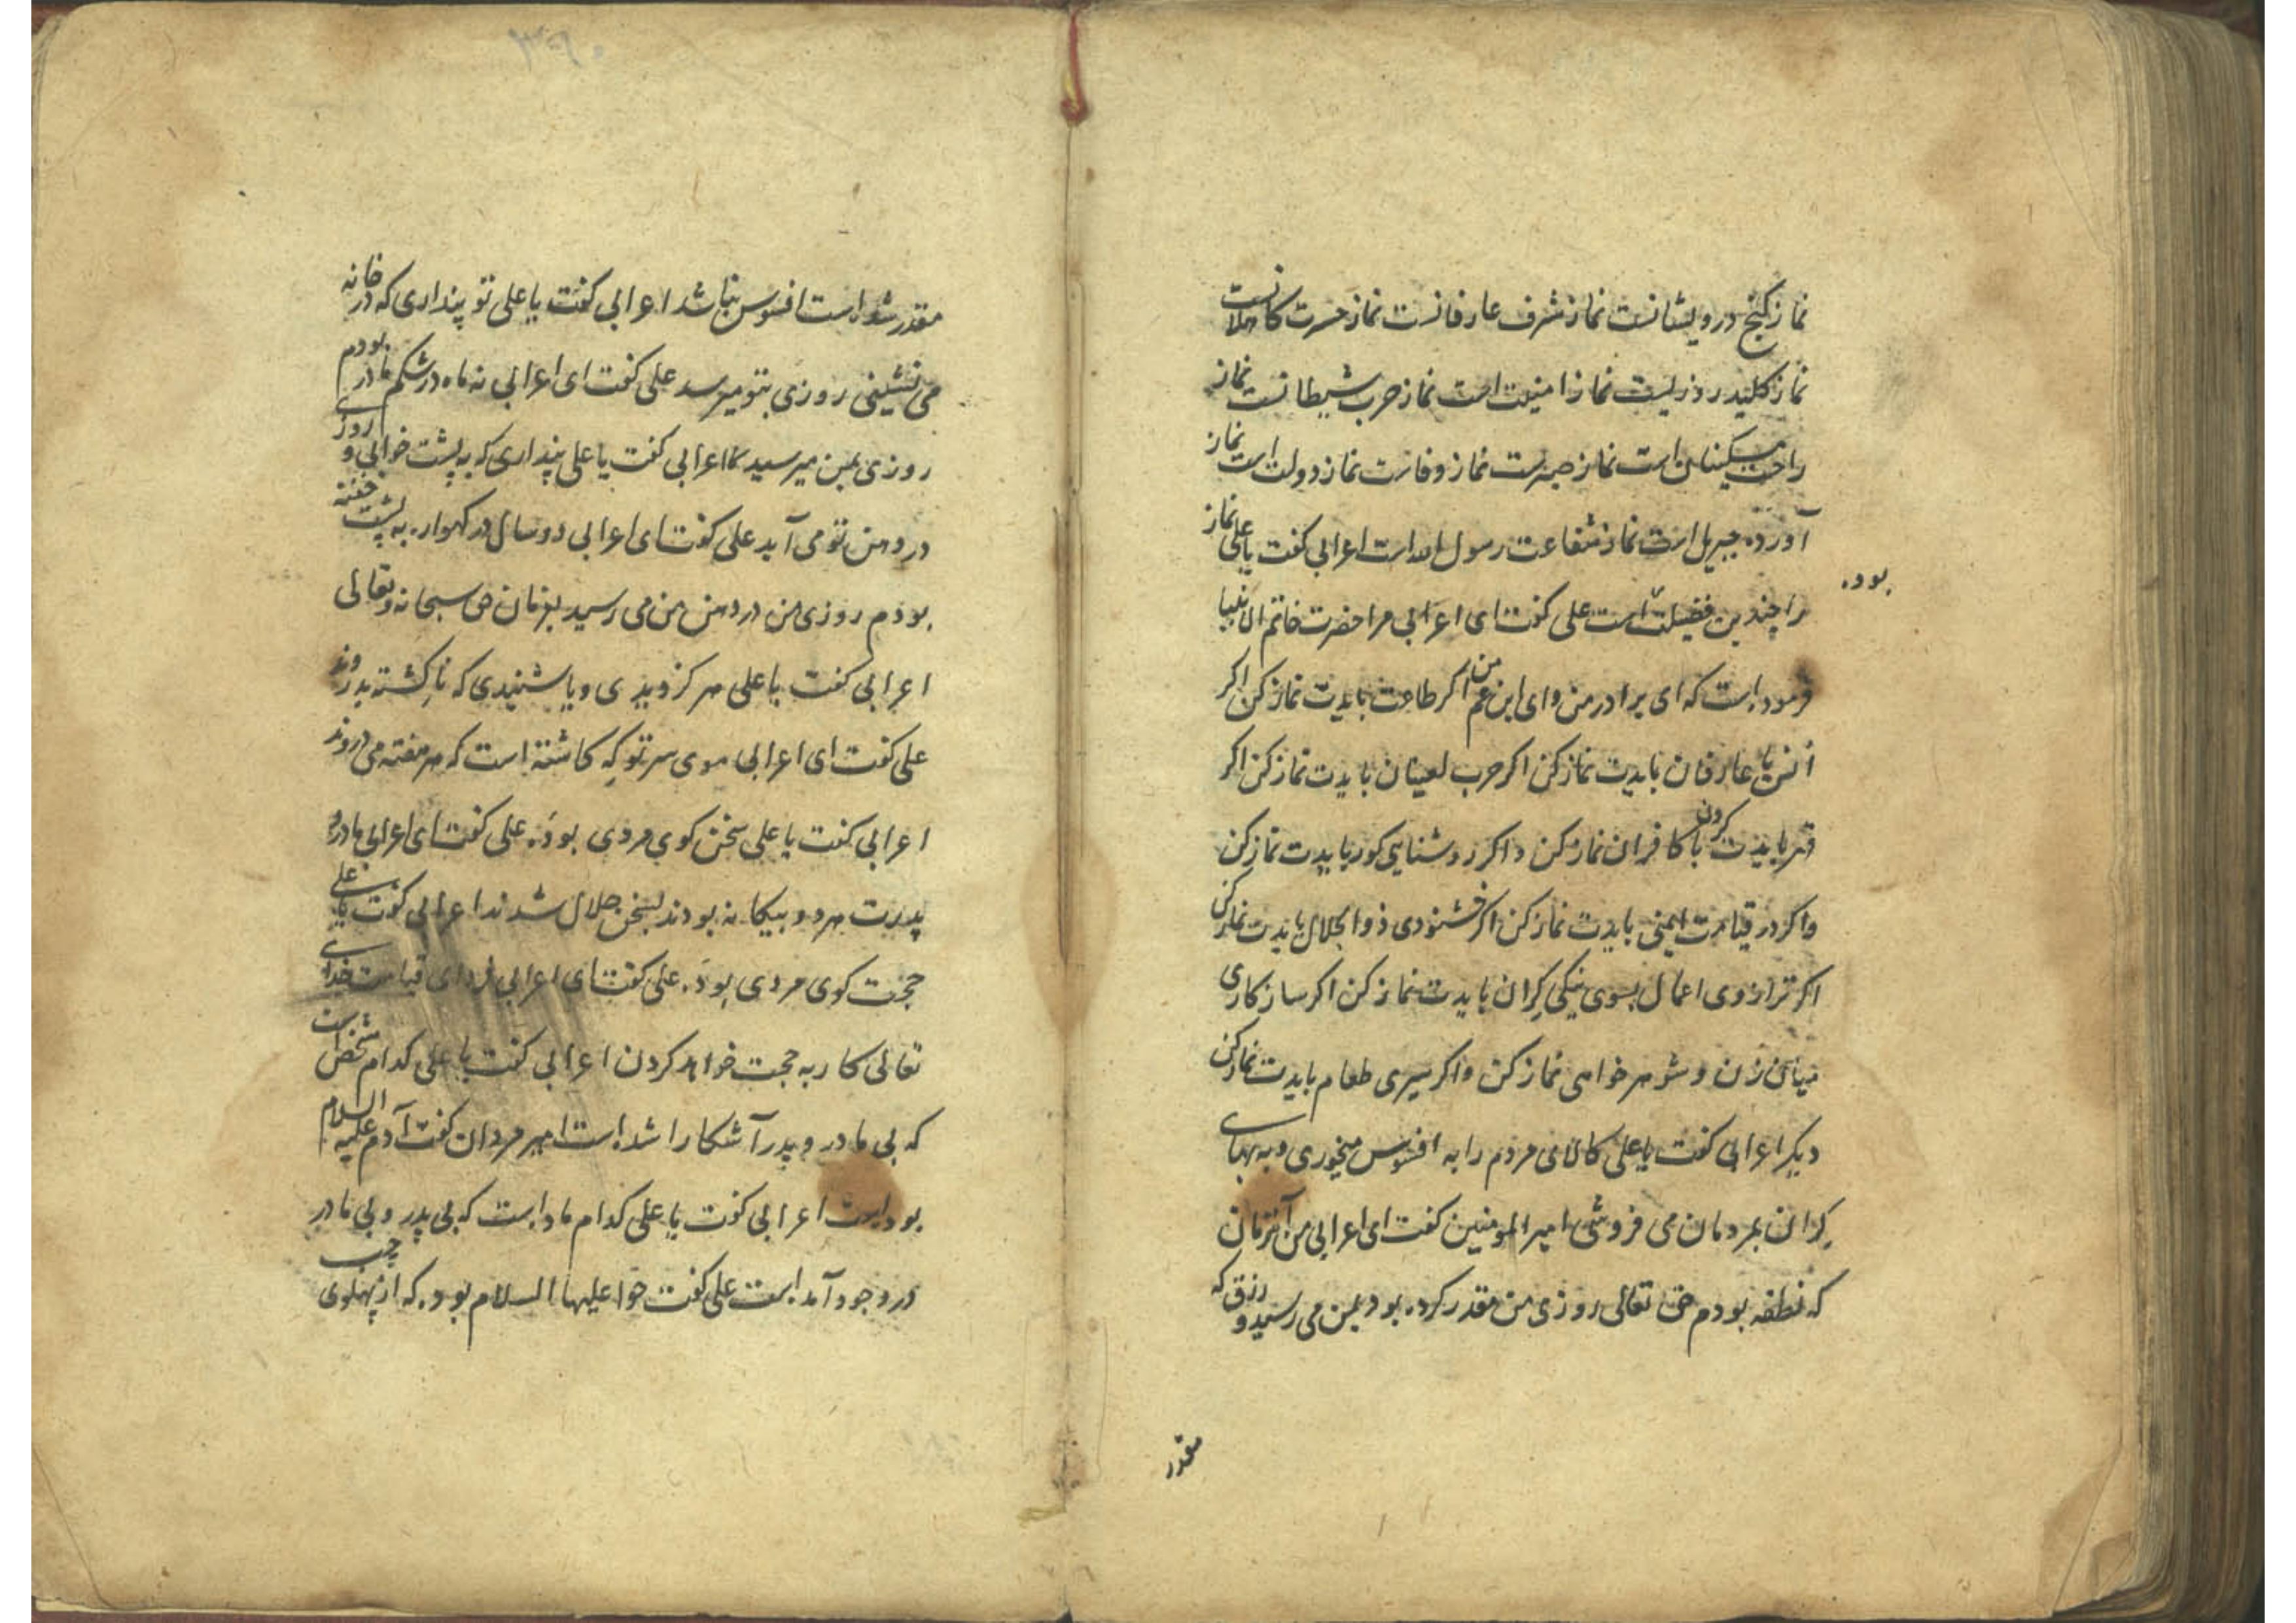 نماز کنج درویشانست نماز شرف عارفانست نماز حسرت کاهلانست
نماز کلید روزیست نماز امنیت است نماز حرب شیطانست نماز
راحت مسکینان است نماز صبرست نماز وفاست نماز دولت است نماز
آورده جبریل است نماز شفاعت رسول الله است اعرابی کفت یا علی نماز
بوده
را چندین فضیلت است علی کفت ای اعرابی مرا حضرت خاتم الانبیا
فرموده است که ای برادر من و ای ابن عم من اکر طاعت بایدت نماز کن اکر
انس با عارفان بایدت نماز کن اکر حرب لعینان بایدت نماز کن اکر
قهر بایدت کردن با کافران نماز کن و اکر روشنایی کور بایدت نماز کن
و اکر در قیامت ایمنی بایدت نماز کن اکر خشنودی ذوالجلال بایدت نماز کن
اکر ترازوی اعمال بسوی نیکی کران بایدت نماز کن اکر سازکاری
میان زن و شوهر خواهی نماز کن و اکر سیری طعام بایدت نماز کن
دیکر اعرابی کفت یا علی کالای مردم را به افسوس میخوری و به بهای
کران بمردمان می فروشی امیر المومنین کفت ای اعرابی من آنزمان
که نطفه بودم حق تعالی روزی من مقدر کرده بود بمن می رسید و رزق که
مقدر
مقدر شده است افسوس نباشد اعرابی کفت یا علی تو پنداری که در خانه
می نشینی روزی بتو میرسد علی کفت ای اعرابی نه ماه در شکم مادر بودم
روزی بمن میرسید اعرابی کفت یا علی پنداری که به پشت خوابی و روزی
در دهن تو می آید علی کفت ای اعرابی دو سال در کهواره به پشت خفته
بودم روزی من در دهن من می رسید بفرمان حق سبحانه و تعالی
اعرابی کفت یا علی هرکز دیدی و یا شنیدی که ناکشته بدروند
علی کفت ای اعرابی موی سر تو که کاشته است که هر هفته می دروند
اعرابی کفت یا علی سخن کوی مردی بوده علی کفت ای اعرابی مادر و
پدرت هر دو بیکانه بودند بسخن حلال شدند اعرابی کفت یا علی
حجت کوی مردی بوده علی کفت ای اعرابی فردای قیامت خدای
تعالی کار به حجت خواهد کردن اعرابی کفت یا علی کدام شخص است
که بی مادر و پدر آشکارا شده است امیر مردان کفت آدم علیه السلام
بوده است اعرابی کفت یا علی کدام ماده است که بی پدر و بی مادر
در وجود آمده است علی کفت حوا علیها السلام بود که از پهلوی چپ